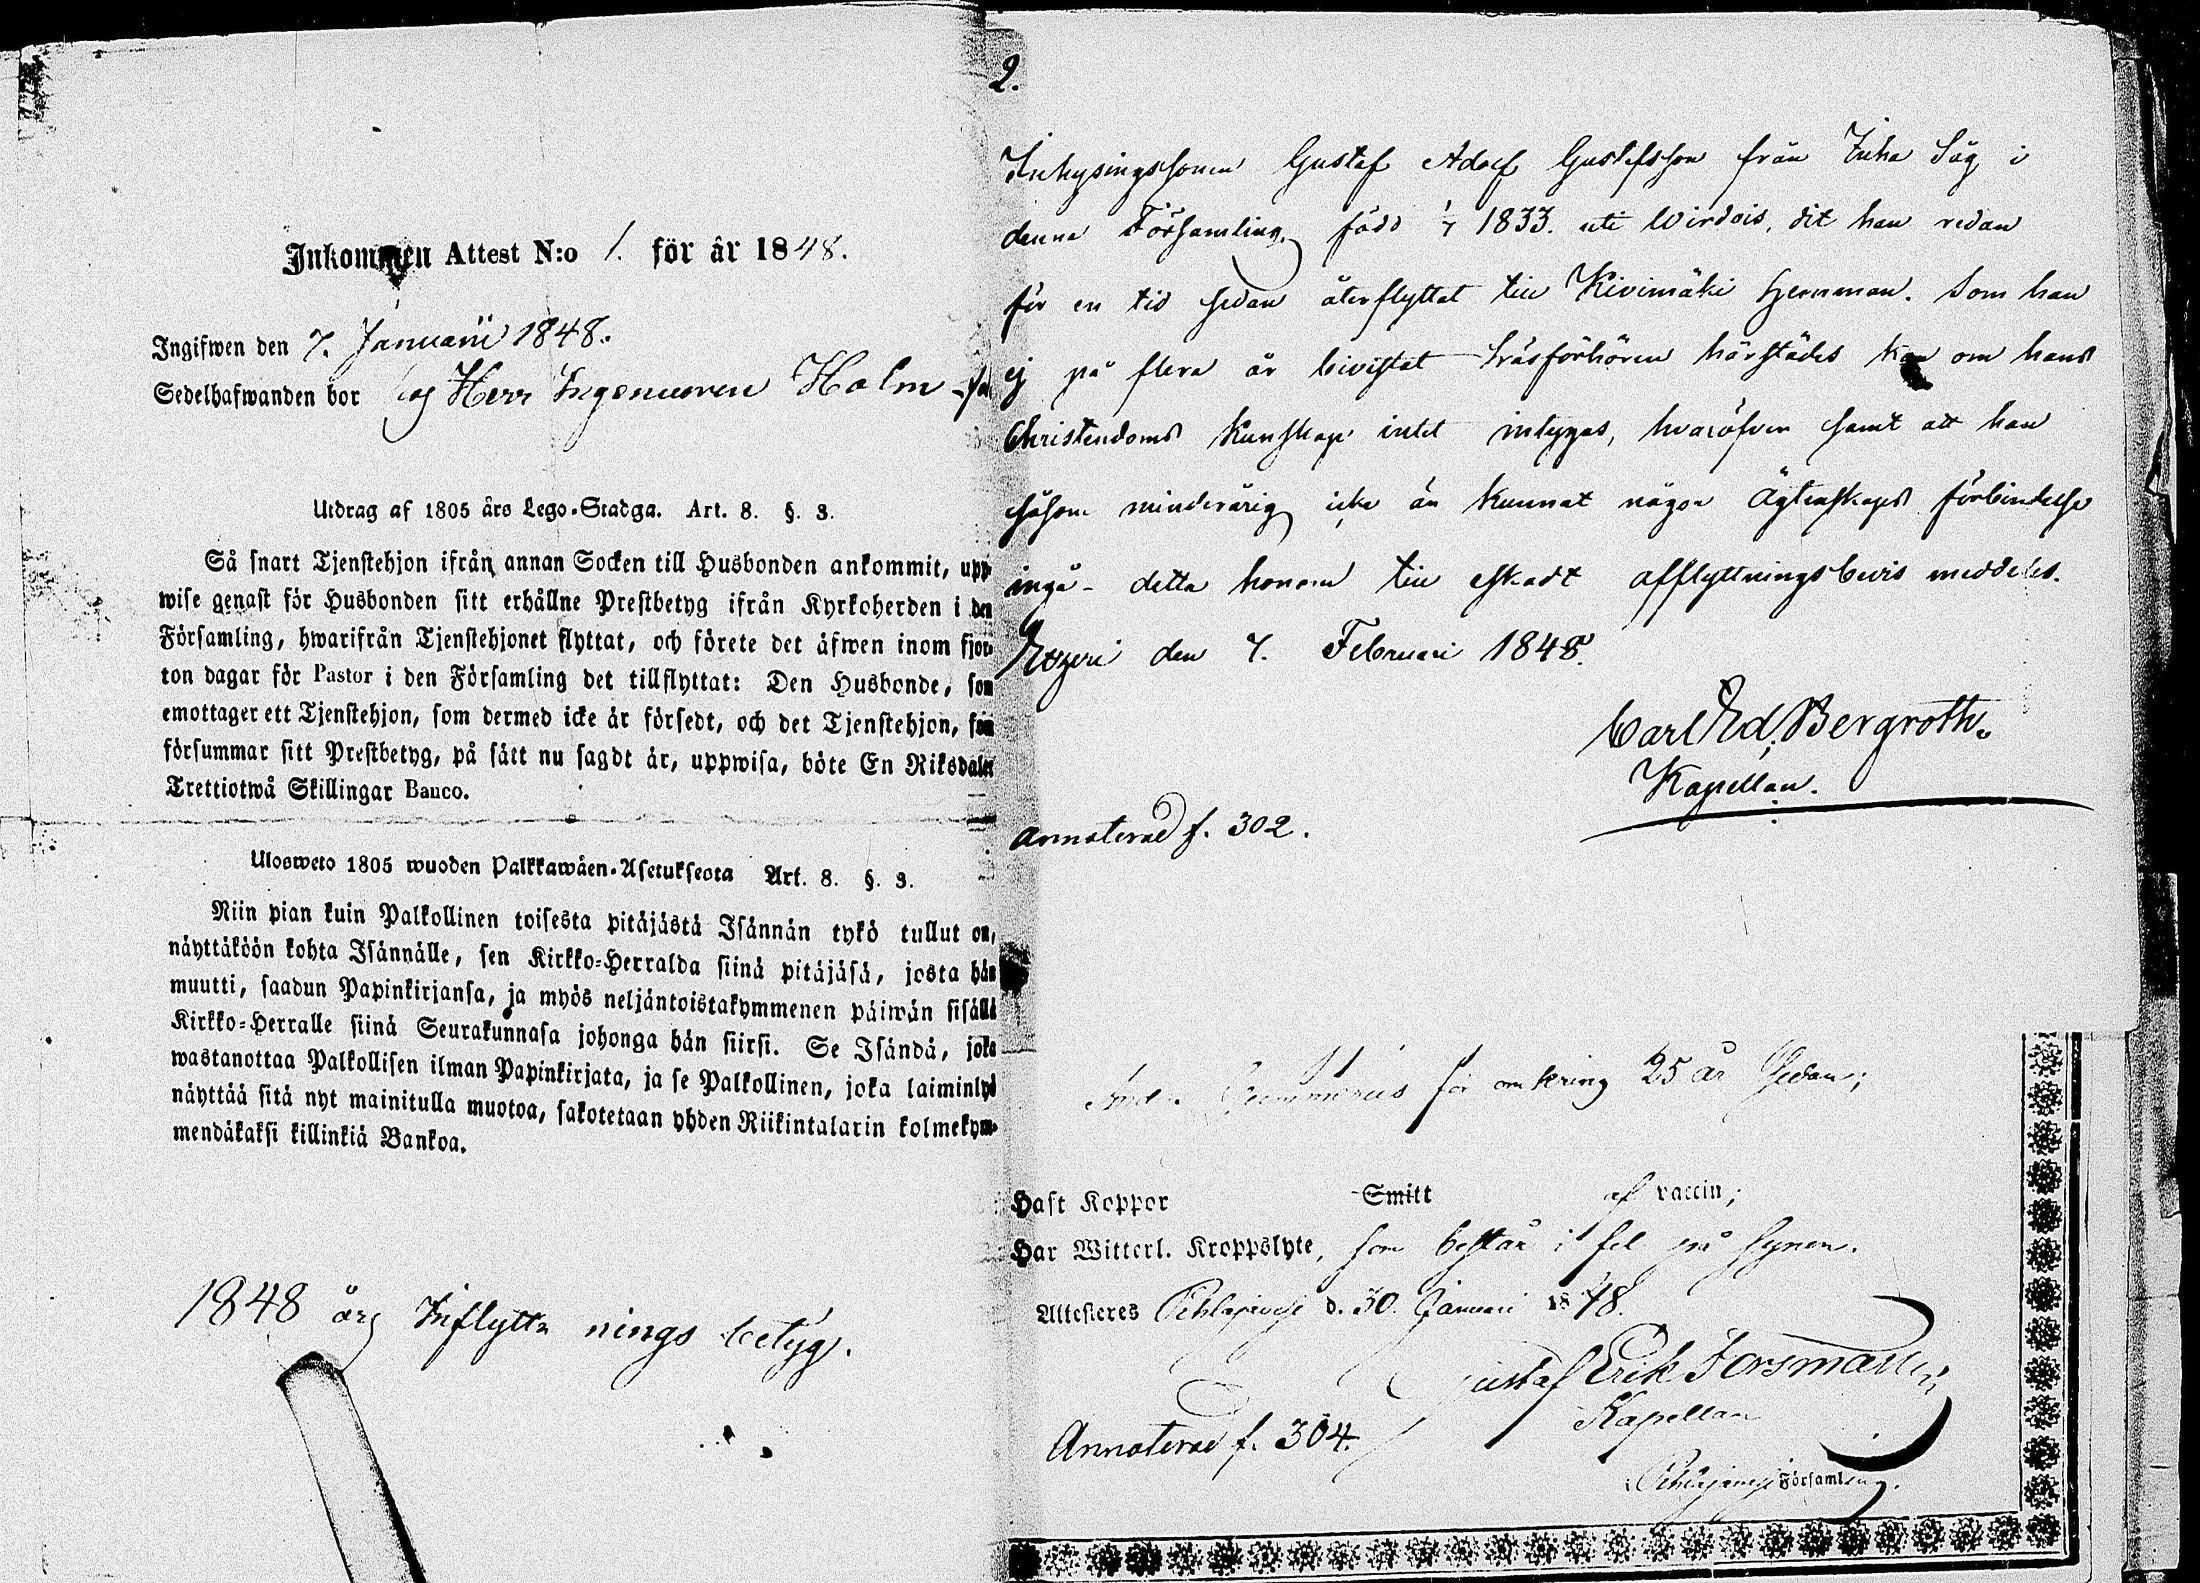 Inkommen Attest N:o 1. för år 1848.
Ingifwen den 7. Januarii 1848.
Sedelhafwanden bor hos Herr Ingenieuren Holm
Utdrag af 1805 års Lego-Stadga. Art. 8. §. 3.
Så snart Tjenstehjon ifrån annan Socken till Husbonden ankommit, upp-
wise genast för Husbonden sitt erhållne Prestbetyg ifrån Kyrkoherden i den
Församling, hwarifrån Tjenstehjonet flyttat, och förete det äfwen inom fjor-
ton dagar för Pastor i den Församling det tillflyttat: Den Husbonde, som
emottager ett Tjenstehjon, som dermed icke är försedt, och det Tjenstehjon, som
försummar sitt Prestbetyg, på sätt nu sagdt är, uppwisa, böte En Riksdaler
Trettiotwå Skillingar Banco.
Ulosweto 1805 wuoden Palkkawäen-Asetuksesta Art. 8. §. 3.
Niin pian kuin Palkollinen toisesta pitäjästä Isännän tykö tullut on,
näyttäköön kohta Isännälle, sen Kirkko-Herralda siinä pitäjäsä, josta hän
muutti, saadun Papinkirjansa, ja myös neljäntoistakymmenen päiwän sisällä
Kirkko-Herralle siinä Seurakunnasa johonga hän siirsi. Se Isändä, joka
wastanottaa Palkollisen ilman Papinkirjata, ja se Palkollinen, joka laiminlyö
näyttää sitä nyt mainitulla muotoa, sakotetaan yhden Riikintalarin kolmekym-
mendäkaksi killinkiä Bankoa.
1848 års Inflyttnings betyg.
2.
Inhysingssonen Gustaf Adolf Gustafsson från Inha Såg i
denna Församling, född 1/7 1833. uti Wirdois, dit han redan
för en tid sedan återflyttat till Kivimäki hemman. Som han
ej på flera år bivistat läsförhören härstädes kan om hans
Christendoms kunskap intet intygas, hvaröfver samt att han
såsom minderårig icke än kunnat någon ägtenskaps förbindelse
ingå - detta honom till äskadt afflyttningsbevis meddelas.
Etzeri den 7. Februari 1848.
Carl Ed. Bergroth.
Kapellan.
Annoterad f. 302.
för omkring 25 år sedan;
Haft Koppor Smitt af vaccin;
Har Witterl. Kroppslyte, som består i fel på synen.
Attesteres Pehlajäwesi d. 30 Januari 1848.
Gustaf Erik Forsman
Kapellan
Annoterad f. 304.
Pehlajäwesi Församling.